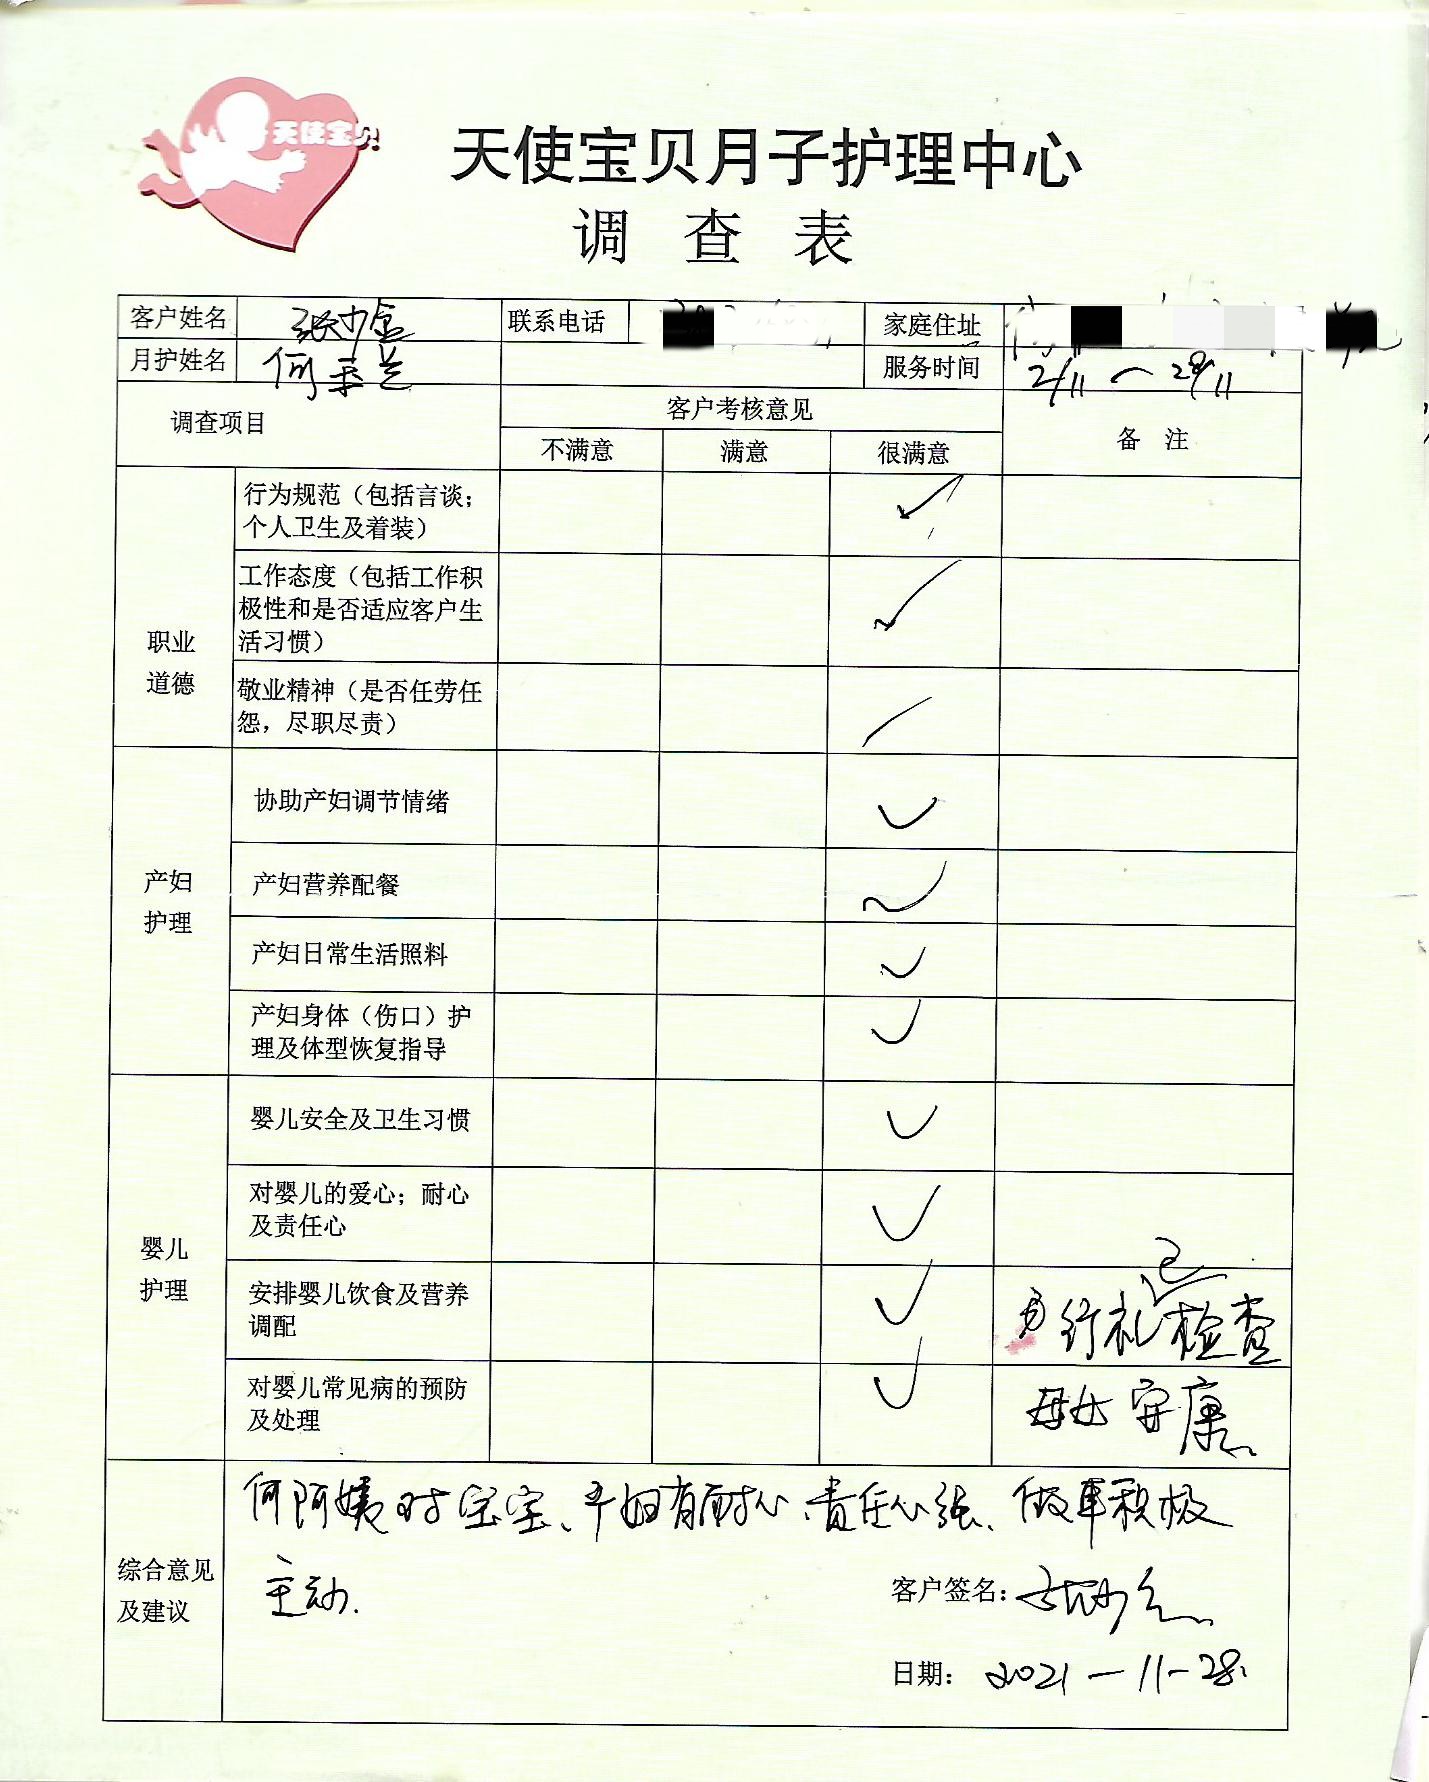 天使宝贝
天使宝贝月子护理中心
调 查 表
客户姓名 联系电话 家庭住址
月护姓名 何玉兰 服务时间 2/11～28/11
调查项目 客户考核意见 备 注
不满意 满意 很满意
职业
道德
行为规范（包括言谈；
个人卫生及着装） ✓
工作态度（包括工作积
极性和是否适应客户生
活习惯） ✓
敬业精神（是否任劳任
怨，尽职尽责）
产妇
护理
协助产妇调节情绪 ✓
产妇营养配餐 ✓
产妇日常生活照料 ✓
产妇身体（伤口）护
理及体型恢复指导 ✓
婴儿
护理
婴儿安全及卫生习惯 ✓
对婴儿的爱心；耐心
及责任心 ✓
安排婴儿饮食及营养
调配 ✓ 行礼已检查
对婴儿常见病的预防
及处理 ✓ 母女安康
综合意见
及建议
何阿姨对宝宝、产妇有耐心、责任心强、做事积极
主动.
客户签名：
日期： 2021-11-28.